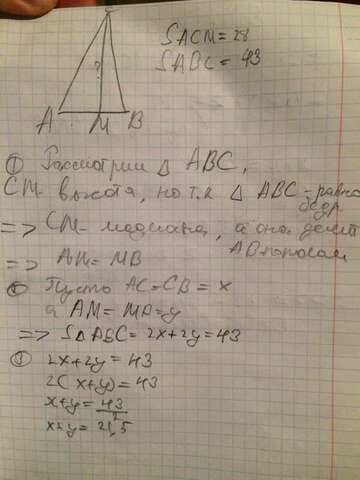 C
SACM = 28
SABC = 43
?
A M B
① Рассмотрим △ ABC,
CM - высота, но т.к △ ABC - равно
бедр
=> CM - медиана, а она делит
AB пополам
=> AM = MB
② Пусть AC = CB = x
а AM = MB = y
=> S△ABC = 2x + 2y = 43
③ 2x + 2y = 43
2(x + y) = 43
x + y = 43/2
x + y = 21,5